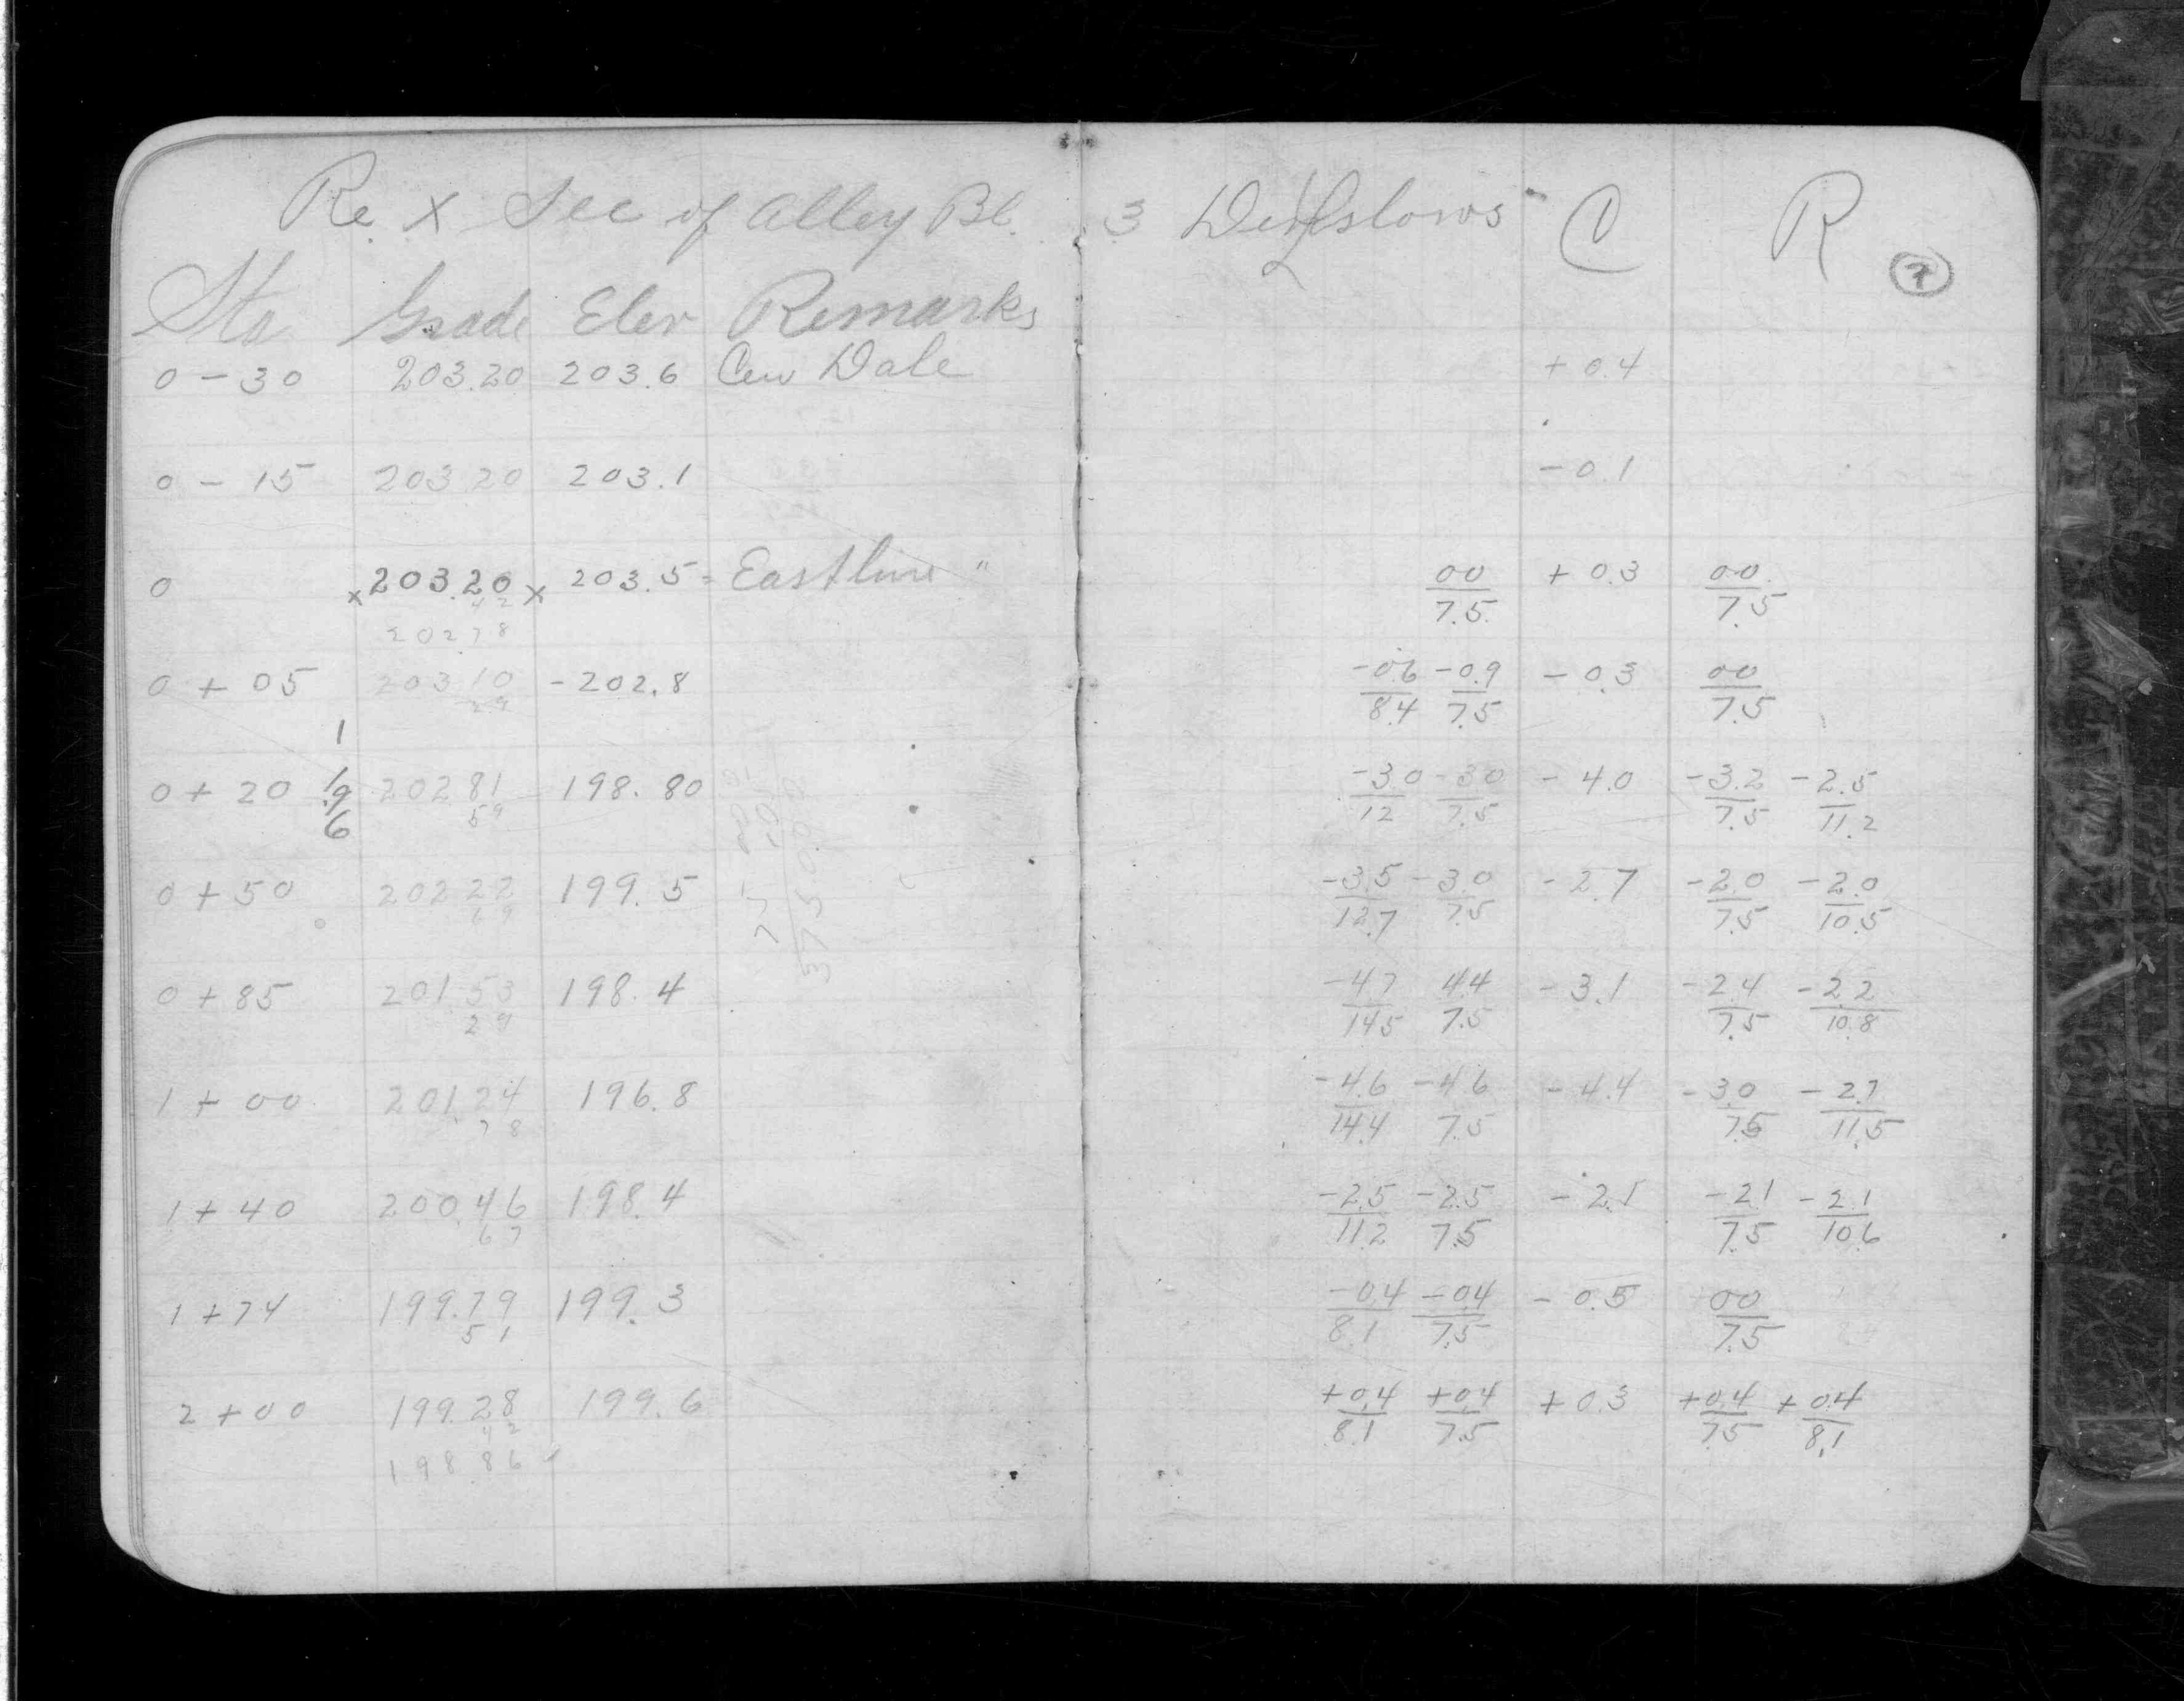 Re X Sec of Alley Bl. 3 Denslows C R
L
7
Sta Grade Elev Remarks
0 - 30 203.20 203.6 Cen Dale + 0.4
0 - 15 203.20 203.1 - 0.1
0 x 203.20 x 203.5 = East line " 00/7.5 + 0.3 00/7.5
42
202.78
0 + 05 203 10 - 202.8 -0.6/8.4 -0.9/7.5 - 0.3 00/7.5
29
1
0 + 20 19 202 81 198.80 -3.0/12 -3.0/7.5 - 4.0 -3.2/7.5 -2.5/11.2
6 59
0 + 50 202 22 199.5 -3.5/12.7 -3.0/7.5 - 2.7 -2.0/7.5 -2.0/10.5
69
0 + 85 201 53 198.4 -4.7/14.5 4.4/7.5 - 3.1 -2.4/7.5 -2.2/10.8
29
1 + 00 201.24 196.8 -4.6/14.4 -4.6/7.5 - 4.4 -3.0/7.5 -2.7/11.5
78
1 + 40 200.46 198.4 -2.5/11.2 -2.5/7.5 - 2.1 -2.1/7.5 -2.1/10.6
67
1 + 74 199.79 199.3 -0.4/8.1 -0.4/7.5 - 0.5 00/7.5
51
2 + 00 199.28 199.6 +0.4/8.1 +0.4/7.5 + 0.3 +0.4/7.5 +0.4/8.1
42
198.86 ✓